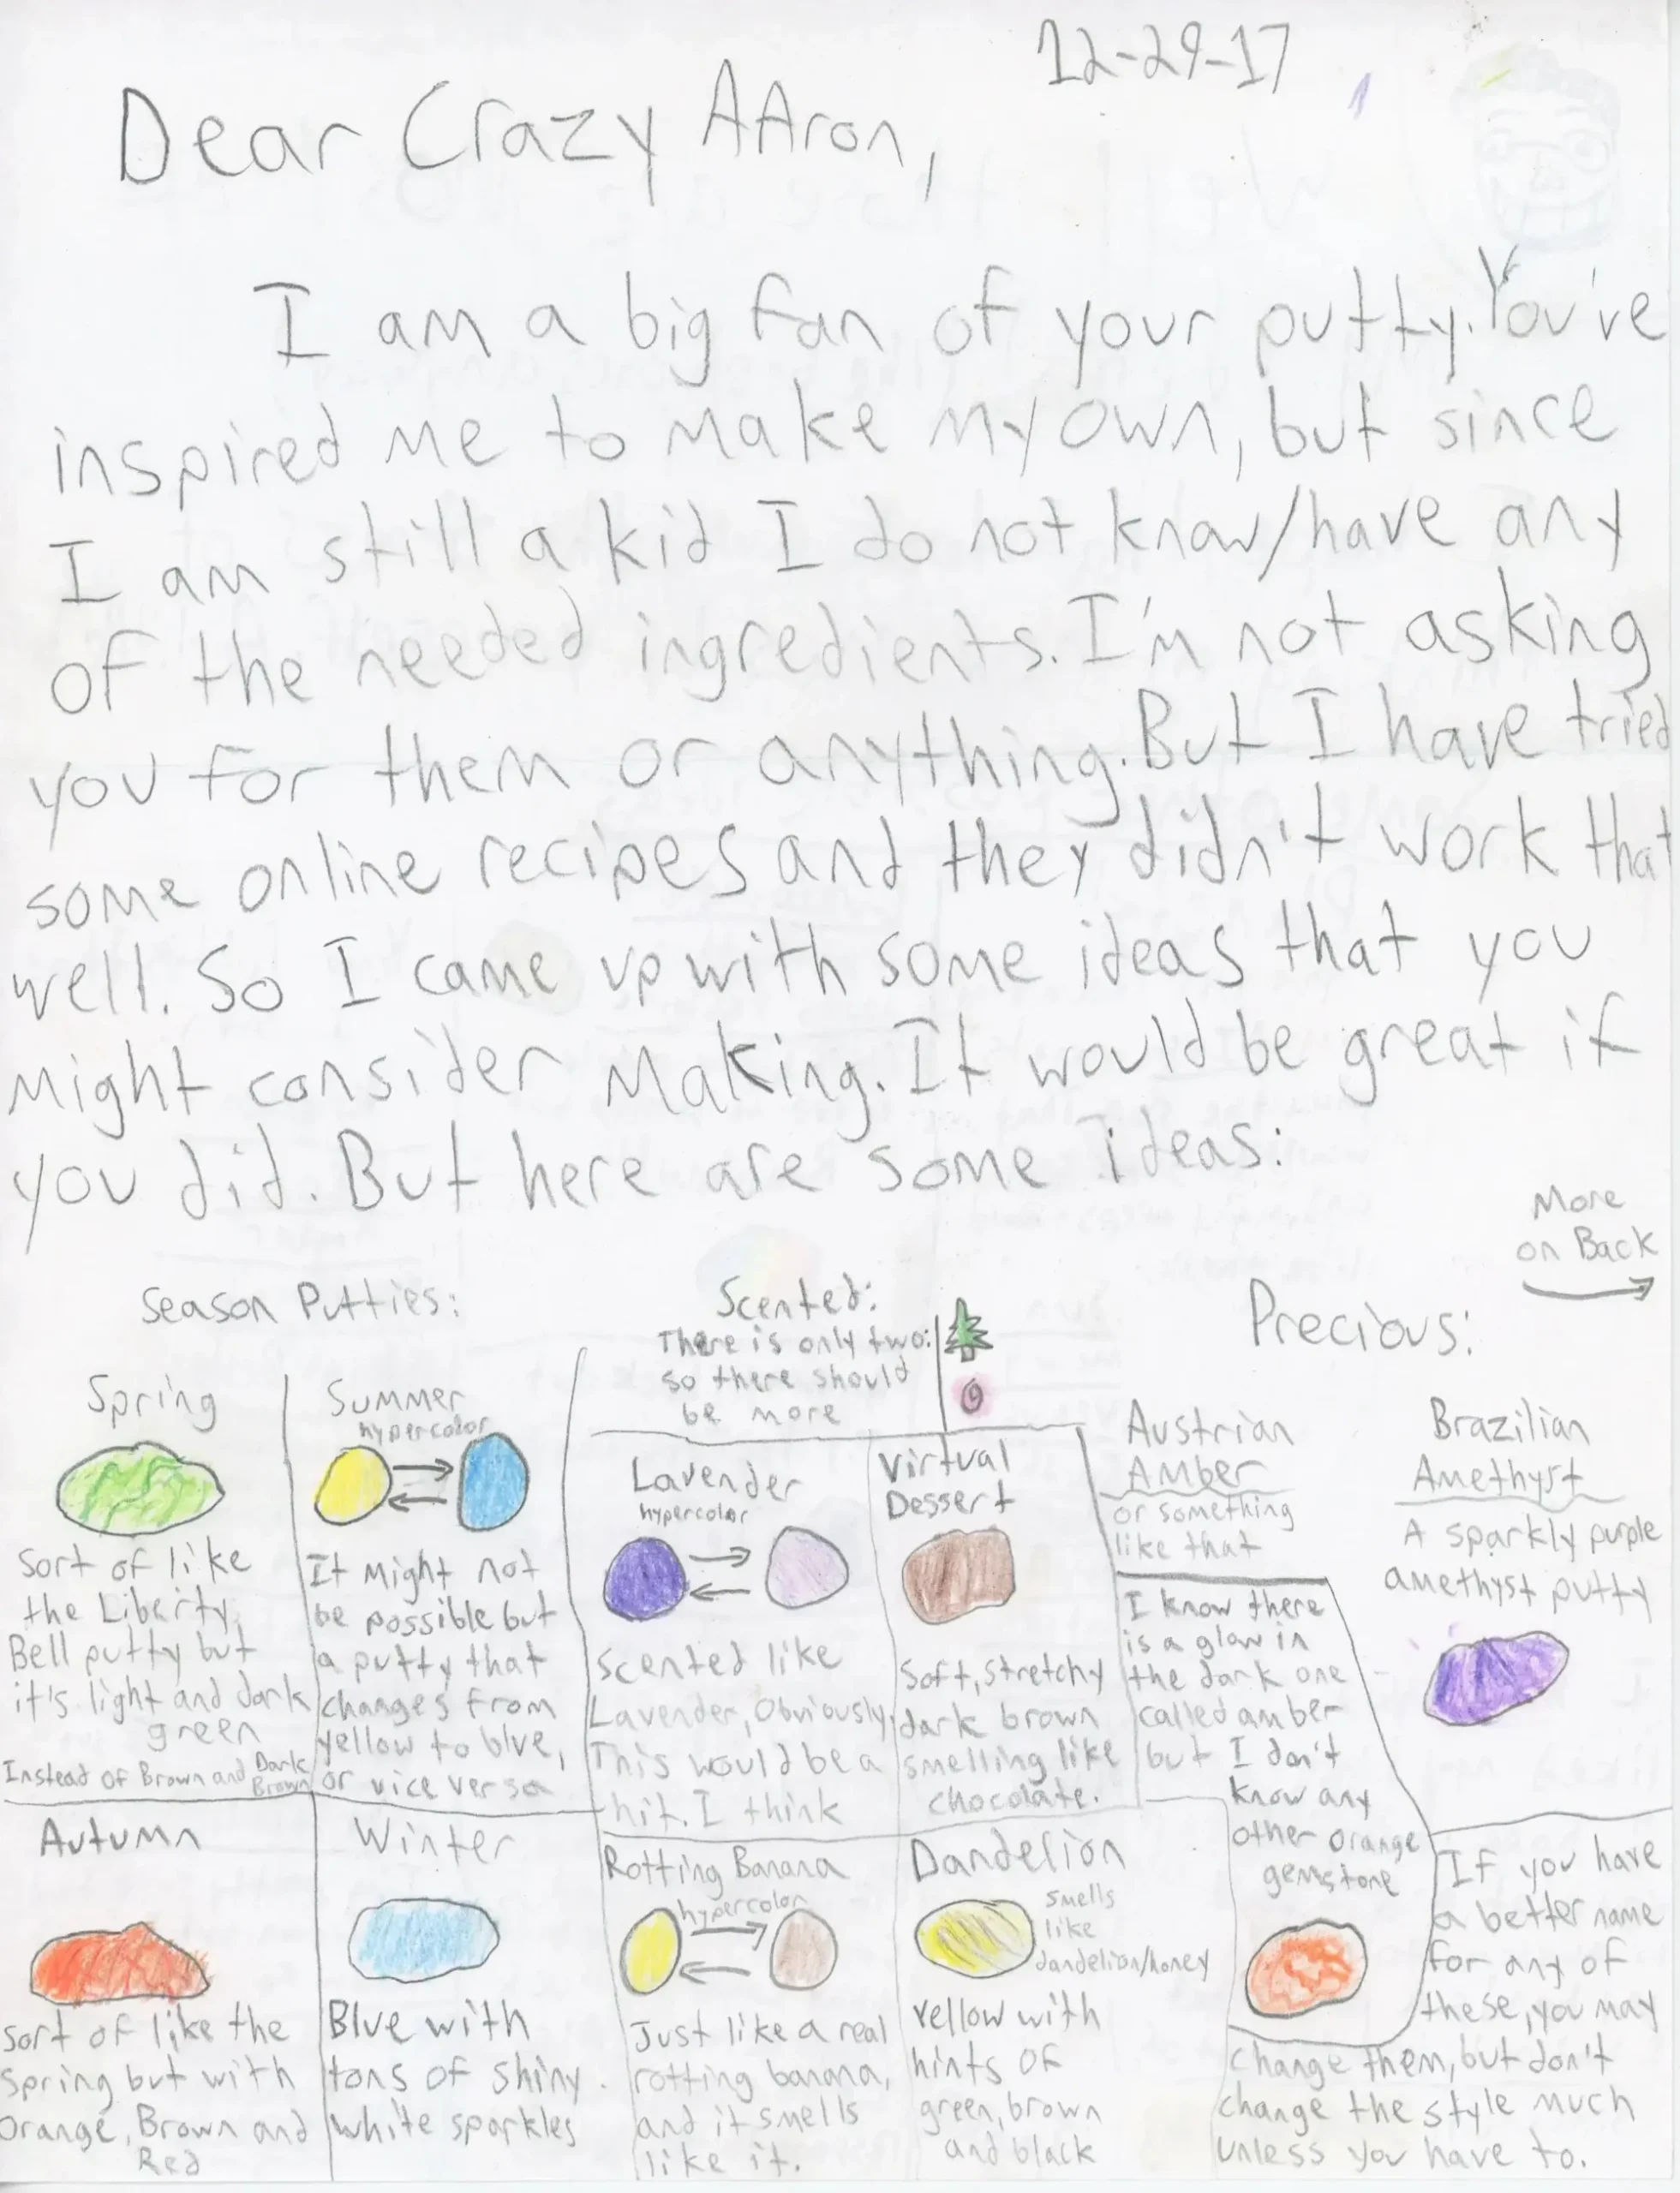 12-29-17
Dear Crazy AAron,
I am a big fan of your putty. You've
inspired me to make my own, but since
I am still a kid I do not know/have any
of the needed ingredients. I'm not asking
you for them or anything. But I have tried
some online recipes and they didn't work that
well. So I came up with some ideas that you
might consider making. It would be great if
you did. But here are some ideas:
More
on Back
Season Putties:
Spring
Sort of like
the Liberty
Bell putty but
it's light and dark
green
Instead of Brown and Dark
Brown
Summer
hypercolor
It might not
be possible but
a putty that
changes from
yellow to blue,
or vice versa
Autumn
Sort of like the
Spring but with
Orange, Brown and
Red
Winter
Blue with
tons of shiny
white sparkles
Scented:
There is only two:
so there should
be more
Lavender
hypercolor
Scented like
Lavender, Obviously,
This would be a
hit. I think
Virtual
Dessert
Soft, stretchy
dark brown
smelling like
chocolate.
Rotting Banana
hypercolor
Just like a real
rotting banana,
and it smells
like it.
Dandelion
smells
like
dandelion/honey
Yellow with
hints of
green, brown
and black
Precious:
Austrian
Amber
or something
like that
I know there
is a glow in
the dark one
called amber
but I don't
know any
other orange
gemstone
Brazilian
Amethyst
A sparkly purple
amethyst putty
If you have
a better name
for any of
these, you may
change them, but don't
change the style much
unless you have to.